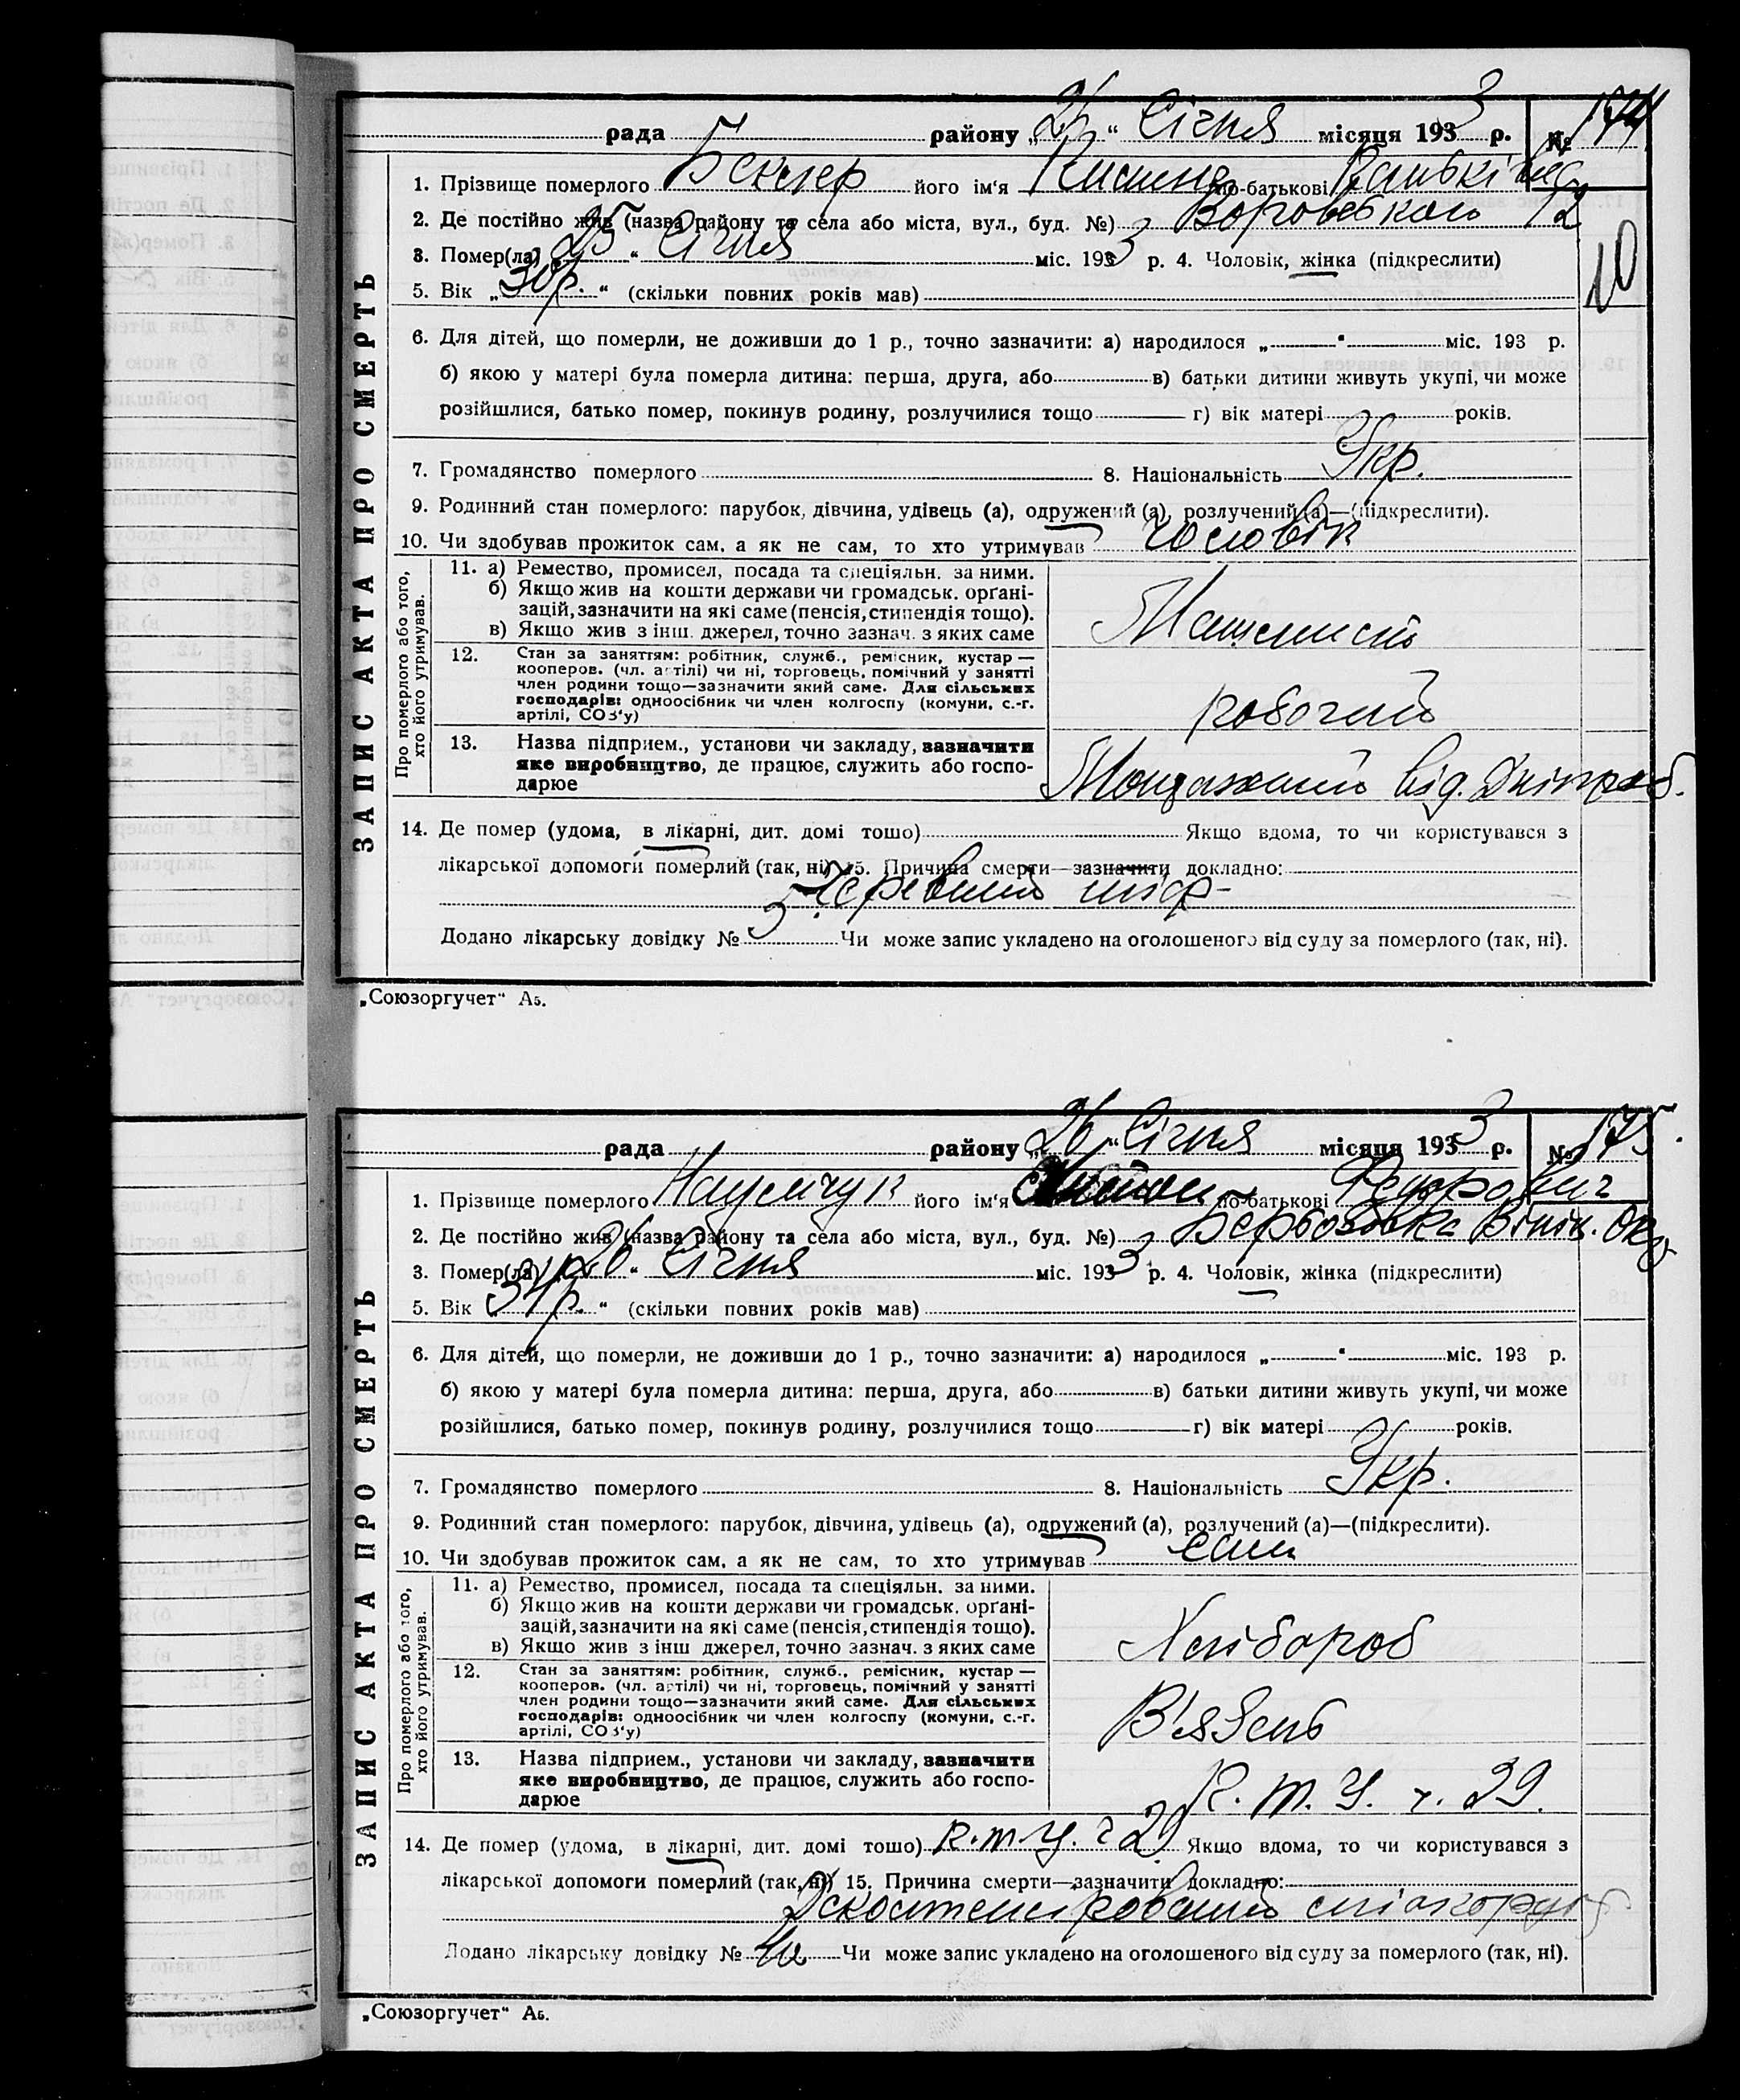 рада район у „26“ Січня місяця 1933 р. № 174
1. Прізвище померлого Беккер його ім'я по-батькові
2. Де постійно жив (назва району та села або міста, вул., буд. №) 12
3. Помер(ла) „25“ Січня міс. 1933 р. 4. Чоловік, жінка (підкреслити)
10
5. Вік „30р.“ (скільки повних років мав)
6. Для дітей, що померли, не доживши до 1 р., точно зазначити: а) народилося „—“ міс. 193 р.
б) якою у матері була померла дитина: перша, друга, або в) батьки дитини живуть укупі, чи може
розійшлися, батько помер, покинув родину, розлучилися тощо — г) вік матері років.
7. Громадянство померлого 8. Національність Укр.
9. Родинний стан померлого: парубок, дівчина, удівець (а), одружений (а), розлучений (а)—(підкреслити).
10. Чи здобував прожиток сам, а як не сам, то хто утримував Чоловік
ЗАПИС АКТА ПРО СМЕРТЬ
Про померлого або того, хто його утримував.
11. а) Ремество, промисел, посада та спеціяльн. за ними.
б) Якщо жив на кошти держави чи громадськ. орґані-
зацій, зазначити на які саме (пенсія, стипендія тощо).
в) Якщо жив з інш. джерел, точно зазнач. з яких саме
Машиніст
12. Стан за заняттям: робітник, служб., ремісник, кустар —
кооперов. (чл. артілі) чи ні, торговець, помічний у занятті
член родини тощо—зазначити який саме. Для сільських
господарів: одноосібник чи член колгоспу (комуни, с.-г.
артілі, СОЗ'у)
робочий
13. Назва підприєм., установи чи закладу, зазначити
яке виробництво, де працює, служить або госпо-
дарює
від.
14. Де помер (удома, в лікарні, дит. домі тощо) Якщо вдома, то чи користувався з
лікарської допомоги померлий (так, ні) 15. Причина смерти—зазначити докладно:
Черевний тіф
Додано лікарську довідку № 5 Чи може запис укладено на оголошеного від суду за померлого (так, ні).
„Союзоргучет“ А5.
рада району „26“ Січня місяця 1933 р. № 175.
1. Прізвище померлого Наумчук його ім'я по-батькові Федорович
2. Де постійно жив (назва району та села або міста, вул., буд. №) Вінн. Окр
3. Помер(ла) „26“ Січня міс. 1933 р. 4. Чоловік, жінка (підкреслити)
5. Вік „34р.“ (скільки повних років мав)
6. Для дітей, що померли, не доживши до 1 р., точно зазначити: а) народилося „—“ міс. 193 р.
б) якою у матері була померла дитина: перша, друга, або в) батьки дитини живуть укупі, чи може
розійшлися, батько помер, покинув родину, розлучилися тощо — г) вік матері років.
7. Громадянство померлого 8. Національність Укр.
9. Родинний стан померлого: парубок, дівчина, удівець (а), одружений (а), розлучений (а)—(підкреслити).
10. Чи здобував прожиток сам, а як не сам, то хто утримував сам
ЗАПИС АКТА ПРО СМЕРТЬ
Про померлого або того, хто його утримував.
11. а) Ремество, промисел, посада та спеціяльн. за ними.
б) Якщо жив на кошти держави чи громадськ. орґані-
зацій, зазначити на які саме (пенсія, стипендія тощо).
в) Якщо жив з інш джерел, точно зазнач. з яких саме
Хлібороб
12. Стан за заняттям: робітник, служб., ремісник, кустар —
кооперов. (чл. артілі) чи ні, торговець, помічний у занятті
член родини тощо—зазначити який саме. Для сільських
господарів: одноосібник чи член колгоспу (комуни, с.-г.
артілі, СОЗ'у)
В'язень
13. Назва підприєм., установи чи закладу, зазначити
яке виробництво, де працює, служить або госпо-
дарює
К. т. У. ч. 29.
14. Де помер (удома, в лікарні, дит. домі тошо) К. т. У. ч 29 Якщо вдома, то чи користувався з
лікарської допомоги померлий (так, ні) 15. Причина смерти—зазначити докладно:
Додано лікарську довідку № Чи може запис укладено на оголошеного від суду за померлого (так, ні).
„Союзоргучет“ А5.